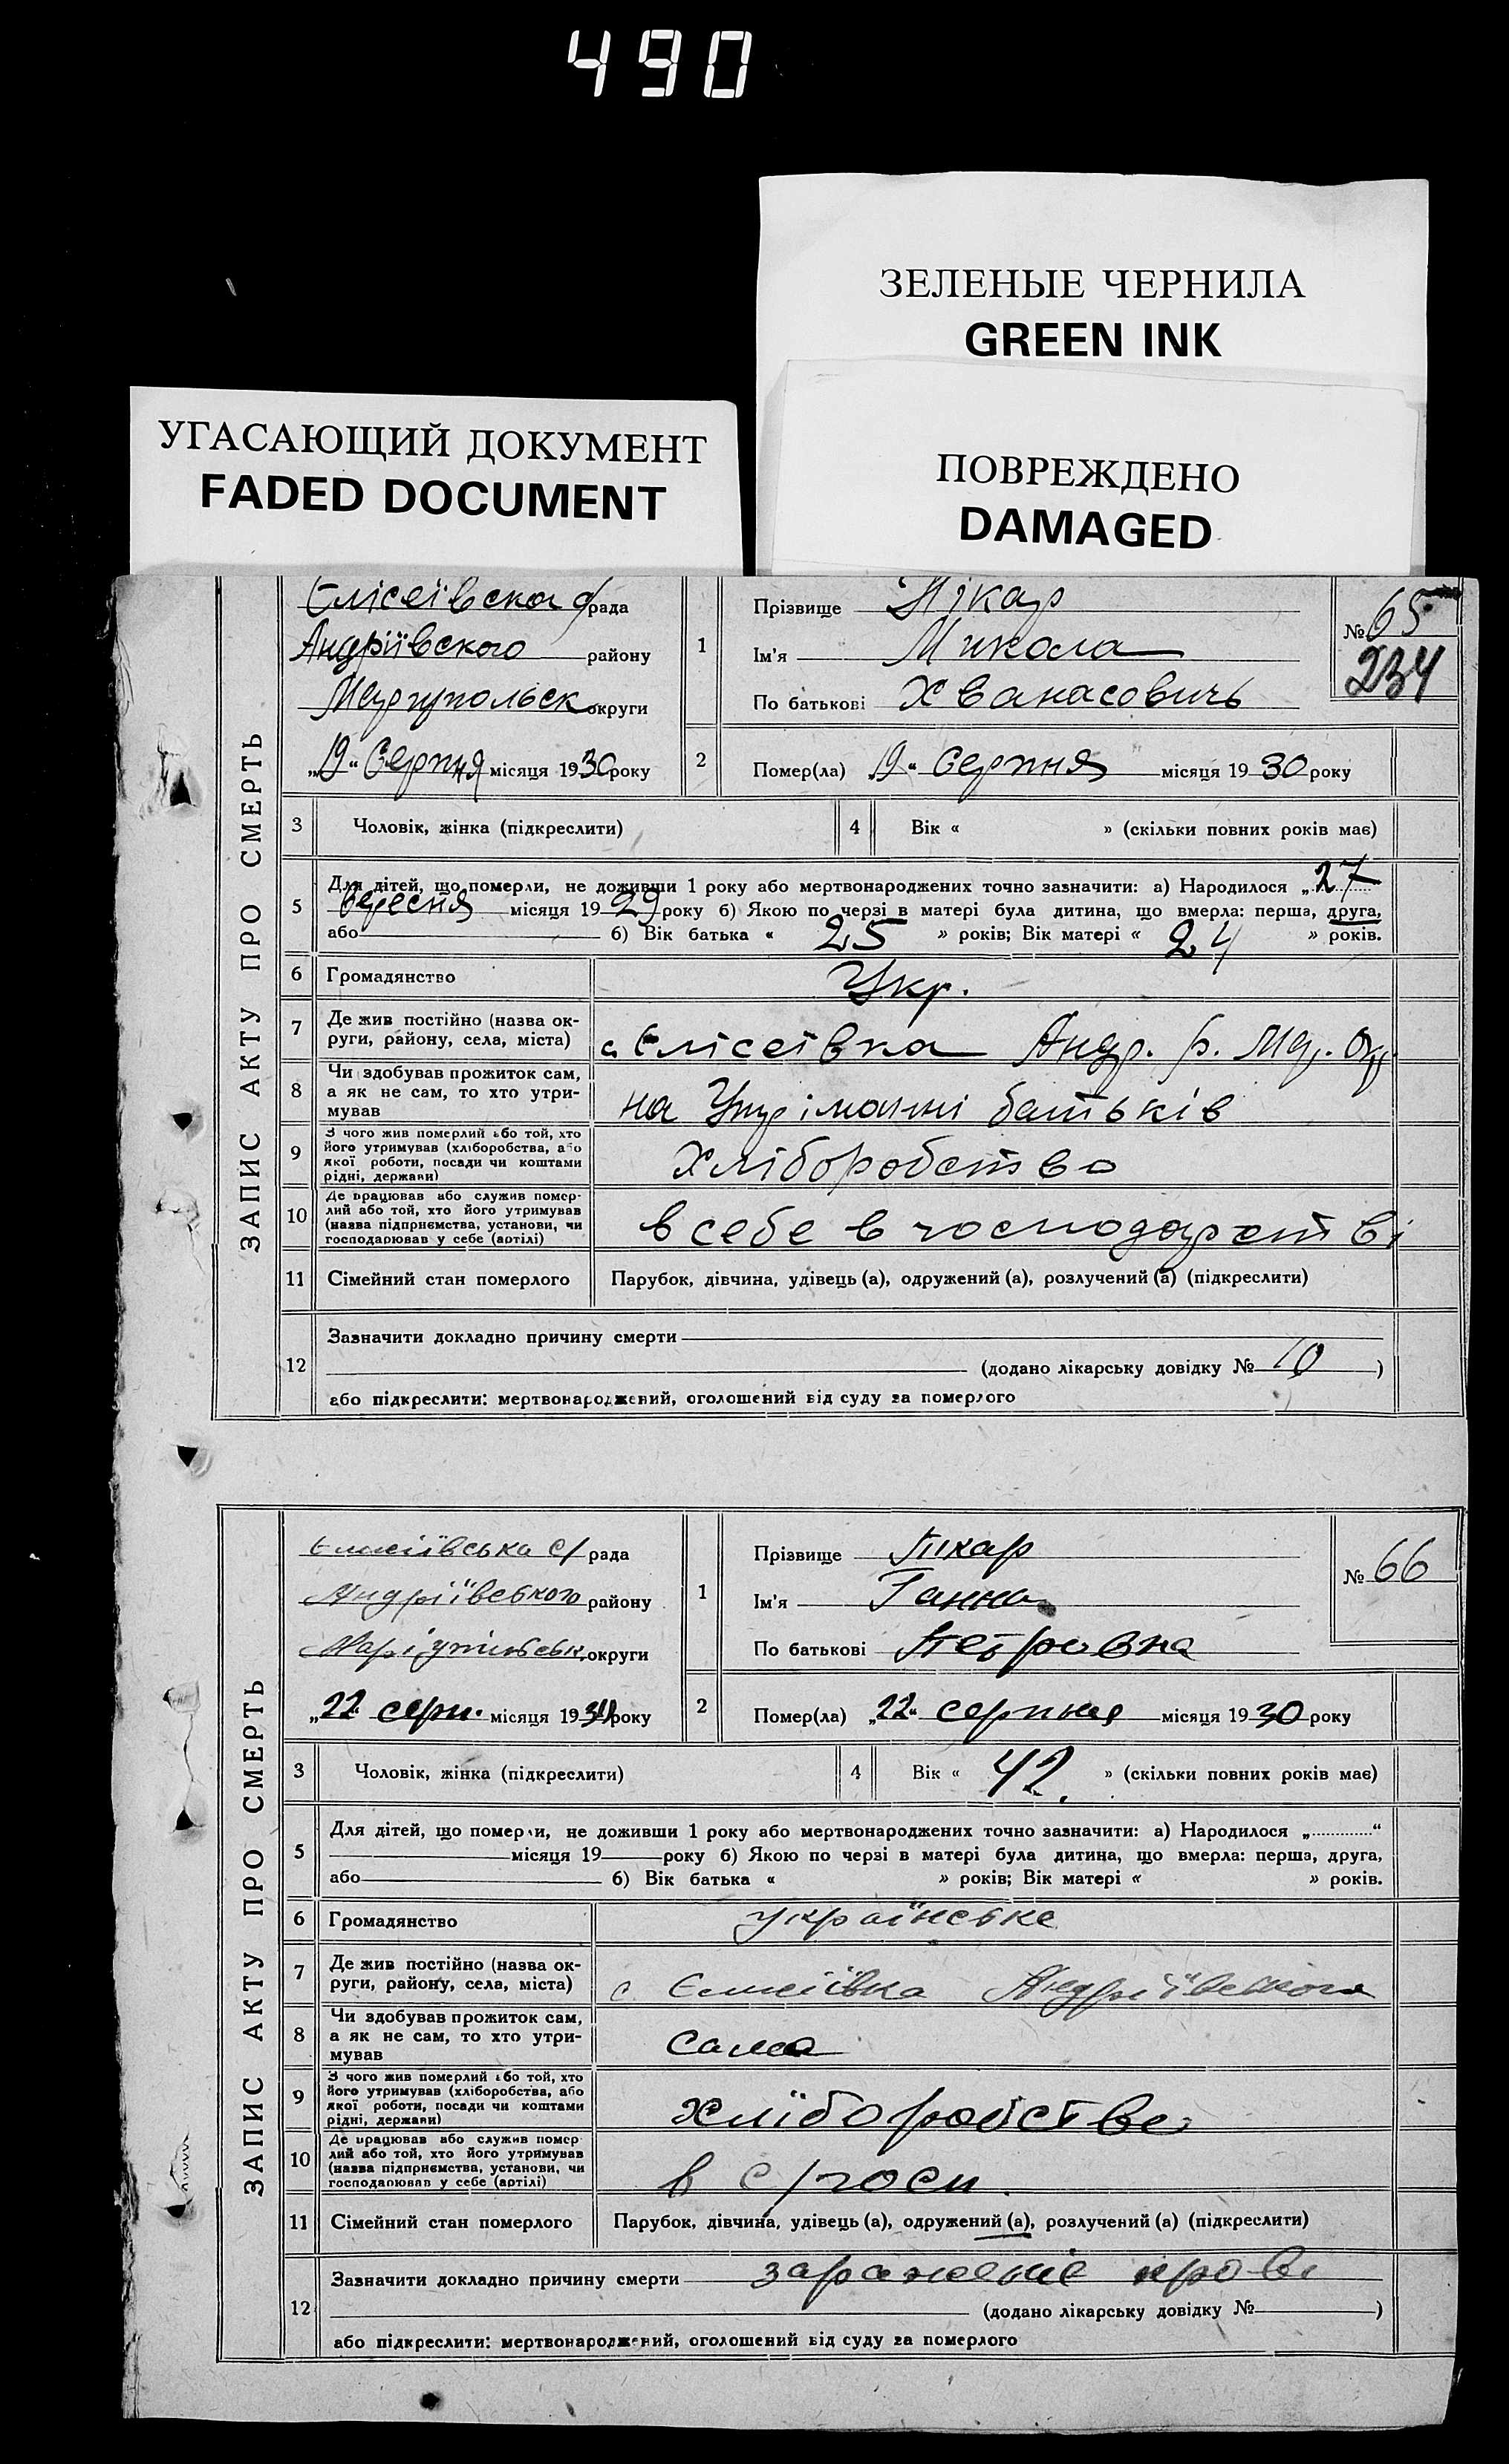 490
ЗЕЛЕНЫЕ ЧЕРНИЛА
GREEN INK
УГАСАЮЩИЙ ДОКУМЕНТ
FADED DOCUMENT
ПОВРЕЖДЕНО
DAMAGED
ЗАПИС АКТУ ПРО СМЕРТЬ
Єлісеївска с/рада
Андріївского району
округи
„19“ Серпня місяця 1930 року
1
Прізвище Пікар
Ім'я Микола
По батькові Хванасовичь
№ 65
234
2 Помер(ла) „19“ Серпня місяця 1930 року
3 Чоловік, жінка (підкреслити)
4 Вік « » (скільки повних років має)
5 Для дітей, що померли, не доживши 1 року або мертвонароджених точно зазначити: а) Народилося „27
Вересня місяця 1929 року б) Якою по черзі в матері була дитина, що вмерла: перша, друга,
або б) Вік батька « 25 » років; Вік матері « 24 » років.
6 Громадянство Укр.
7 Де жив постійно (назва ок-
руги, району, села, міста) с Єлісеївка Андр. р. Мар. Окр
8 Чи здобував прожиток сам,
а як не сам, то хто утри-
мував на Утріманні батьків
9 З чого жив померлий або той, хто
його утримував (хліборобства, або
якої роботи, посади чи коштами
рідні, держави) Хліборобство
10 Де працював або служив помер-
лий або той, хто його утримував
(назва підприємства, установи, чи
господарював у себе (артілі) в себе в господарстві
11 Сімейний стан померлого Парубок, дівчина, удівець (а), одружений (а), розлучений (а) (підкреслити)
12 Зазначити докладно причину смерти
(додано лікарську довідку № 10 )
або підкреслити: мертвонароджений, оголошений від суду за померлого
ЗАПИС АКТУ ПРО СМЕРТЬ
Єлисеївська с/рада
Андріївського району
округи
„22“ серп. місяця 1930 року
1
Прізвище Пікар
Ім'я Ганна
По батькові Петровна
№ 66
2 Помер(ла) „22“ серпня місяця 1930 року
3 Чоловік, жінка (підкреслити)
4 Вік « 42. » (скільки повних років має)
5 Для дітей, що померли, не доживши 1 року або мертвонароджених точно зазначити: а) Народилося „ “
місяця 19 року б) Якою по черзі в матері була дитина, що вмерла: перша, друга,
або б) Вік батька « » років; Вік матері « » років.
6 Громадянство українське
7 Де жив постійно (назва ок-
руги, району, села, міста) с Єлисеївка Андріївського
8 Чи здобував прожиток сам,
а як не сам, то хто утри-
мував сама
9 З чого жив померлий або той, хто
його утримував (хліборобства, або
якої роботи, посади чи коштами
рідні, держави)
10 Де працював або служив помер-
лий або той, хто його утримував
(назва підприємства, установи, чи
господарював у себе (артілі) в с/госп.
11 Сімейний стан померлого Парубок, дівчина, удівець (а), одружений (а), розлучений (а) (підкреслити)
12 Зазначити докладно причину смерти
(додано лікарську довідку № )
або підкреслити: мертвонароджений, оголошений від суду за померлого